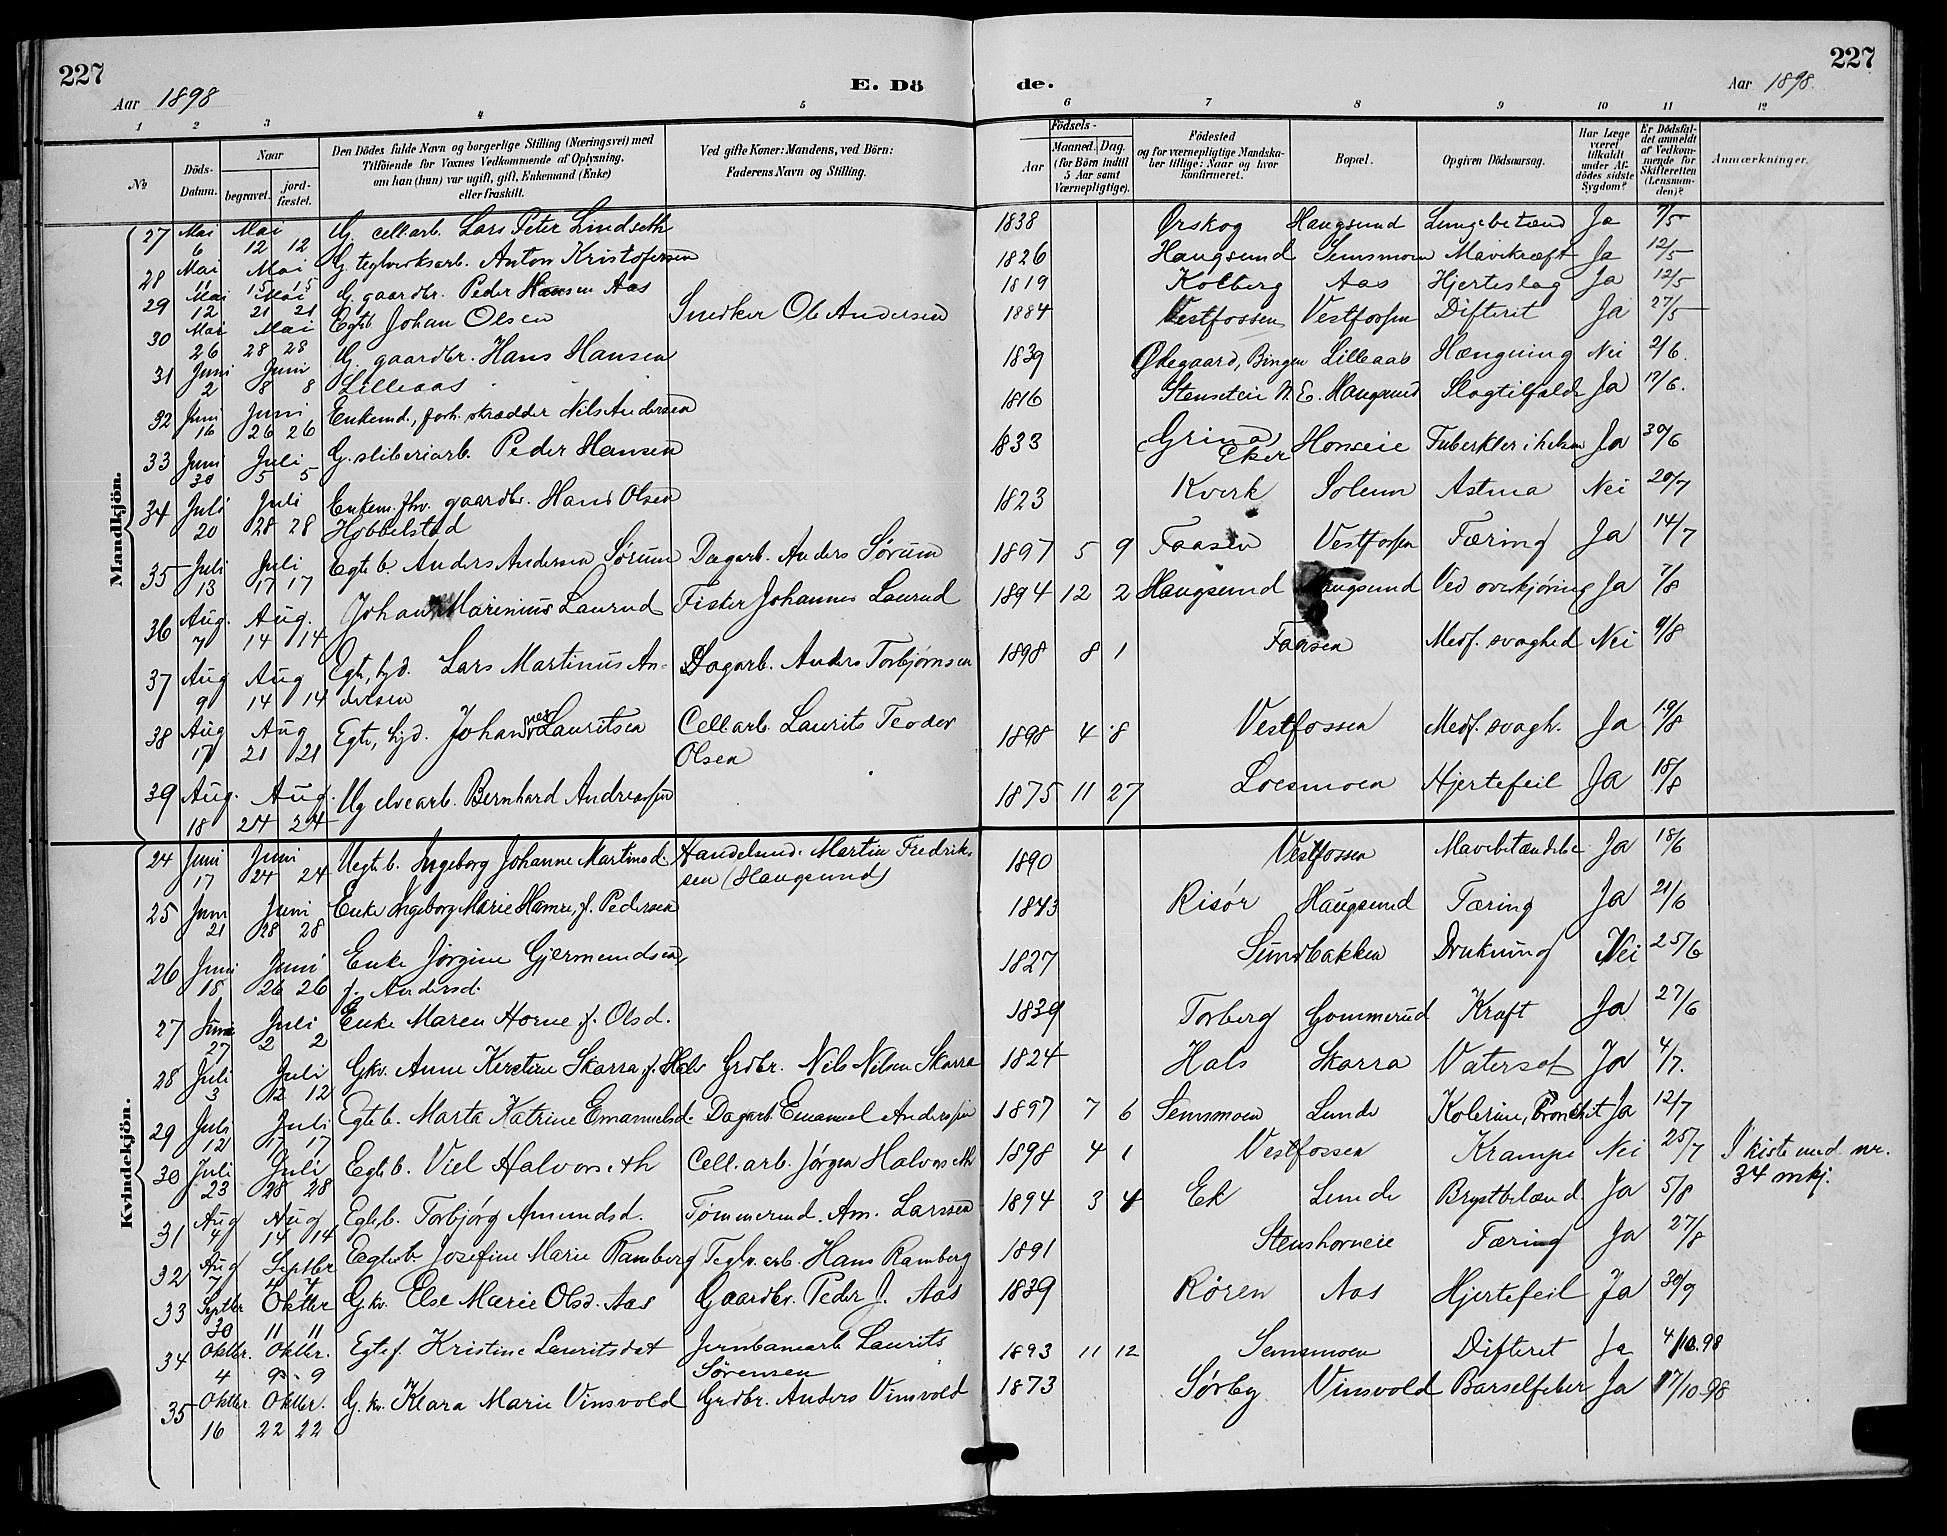 227
Aar 1898
E. Dö
de.
Aar 1898.
227
1 2 3 4 5 6 7 8 9 10 11 12
№
Döds-Datum.
Naar
begravet.
jord-fæstet.
Den Dödes fulde Navn og borgerlige Stilling (Næringsvei) med
Tilföiende for Voxnes Vedkommende af Oplysning,
om han (hun) var ugift, gift, Enkemand (Enke)
eller fraskilt.
Ved gifte Koner: Mandens, ved Börn:
Faderens Navn og Stilling.
Födsels-
Aar
Maaned. Dag.
(for Börn indtil
5 Aar samt
Værnepligtige).
Födested
og for værnepligtige Mandska-
ber tillige: Naar og hvor
konfirmeret.
Bopæl.
Opgiven Dödsaarsag.
Har Læge
været
tilkaldt
under Af-
dödes sidste
Sygdom?
Er Dödsfal-
det anmeldt
af Vedkom-
mende for
Skifteretten
(Lensman-
den)?
Anmærkninger.
Mandkjön.
27 Mai 6 Mai 12 12 Ug cellarb. Lars Peter Lindseth 1838 Ørskog Haugsund Lungebetænd Ja 7/5
28 Mai 11 Mai 15 15 G. teglverksarb. Anton Kristofersen 1826 Haugsund Semsmoen Mavekræft Ja 12/5
29 Mai 12 Mai 21 21 G. gaardbr. Peder Hansen Aas 1819 Kolberg Aas Hjerteslag Ja 12/5
30 Mai 26 Mai 28 28 Egteb Johan Olsen Snedker Ole Andersen 1884 Vestfossen Vestfossen Difterit Ja 27/5
31 Juni 2 Juni 8 8 G. gaardbr. Hans Hansen
Lilleaas 1839 Ødegaard, Bingen Lilleaas Hængning Nei 2/6.
32 Juni 16 Juni 26 26 Enkemd., forh. skrædder Nils Andersen 1816 Stenseteie N. E. Haugsund Slagtilfælde Ja 17/6.
33 Juni 30 Juli 5 5 G. sliberiarb. Peder Hansen 1833 Grina, Eker Horseie Tuberkler i halsen Ja 30/6
34 Juli 20 Juli 28 28 Enkem. fhv. gaardbr. Hans Olsen
Hobbelstad 1823 Kverk Solem Astma Nei 20/7
35 Juli 13 Juli 17 17 Egte b. Anders Andersen Sørum Dagarb. Anders Sørum 1897 5 9 Faasen Vestfossen Tæring Ja 14/7
36 Aug. 7 Aug. 14 14 Johan Marinius Laurud Fister Johannes Laurud 1894 12 2 Haugsund Haugsund Ved overkjøring Ja 7/8
37 Aug 9 Aug 14 14 Egte, hjd. Lars Martinus An-
dersen Dagarb. Anders Torbjørnsen 1898 8 1 Faasen Medf. svaghed Nei 9/8
38 Aug 17 Aug 21 21 Egte, hjd. Johannes Lauritsen Cellarb. Laurits Teodor
Olsen 1898 4 8 Vestfossen Medf. svagh. Ja 19/8
39 Aug. 18 Aug. 24 24 Ug elvearb. Bernhard Andreassen 1875 11 27 Loesmoen Hjertefeil Ja 18/8
Kvindekjön.
24 Juni 17 Juni 24 24 Uegte b. Ingeborg Johanne Martinsd. Handelsmd. Martin Fredrik-
sen (Haugsund) 1890 Vestfossen Mavebetændelse Ja 18/6
25 Juni 21 Juni 28 28 Enke Ingeborg Marie Hamre, f. Pedersen 1843 Risör Haugsund Tæring Ja 21/6
26 Juni 18 Juni 26 26 Enke Jørgine Gjermundsen,
f. Andersd. 1827 Sundbakken Drukning Nei 25/6
27 Juni 27 Juli 2 2 Enke Maren Horne f. Olsd. 1839 Torberg Gommerud Kræft Ja 27/6
28 Juli 3 Juli 12 12 Gkv. Anne Kirstine Skarra, f. Hals Grdbr. Nils Nilsen Skarra 1824 Hals Skarra Vatersot Ja 4/7.
29 Juli 12 Juli 17 17 Egte b. Marta Katrine Emanuelsd. Dagarb. Emanuel Anderssen 1897 7 6 Semsmoen Lunde Kolerine, Bronchit Ja 12/7
30 Juli 23 Juli 28 28 Egte b. Viel Halvorseth Cell. arb. Jørgen Halvorseth 1898 4 1 Vestfossen Krampe Nei 25/7 I kiste med nr.
34 mkj.
31 Aug 4 Aug 14 14 Egteb. Torbjørg Amundsd. Tømmermd. Am. Larssen 1894 3 4 Ek Lunde Brystbetænd. Ja 5/8
32 Aug 7 Septbr 4 4 Egteb. Josefine Marie Ramberg Teglv. arb. Hans Ramberg 1891 Stenshorneie Tæring Ja 27/8
33 Septbr 30 Oktbr 11 11 Gkv. Else Marie Olsd. Aas Gaardbr. Peder J. Aas 1839 Røren Aas Hjertefeil Ja 30/9
34 Oktbr. 4 Oktbr. 9 9 Egtef. Kristine Lauritsdat Jernbanearb Laurits
Sörensen 1893 11 12 Semsmoen Difterit Ja 4/10.98
35 Oktbr. 16 Oktbr. 22 22 G. kv. Klara Marie Vinsvold Grdbr. Anders Vinsvold 1873 Sørby Vinsvold Barselfeber Ja 17/10.98